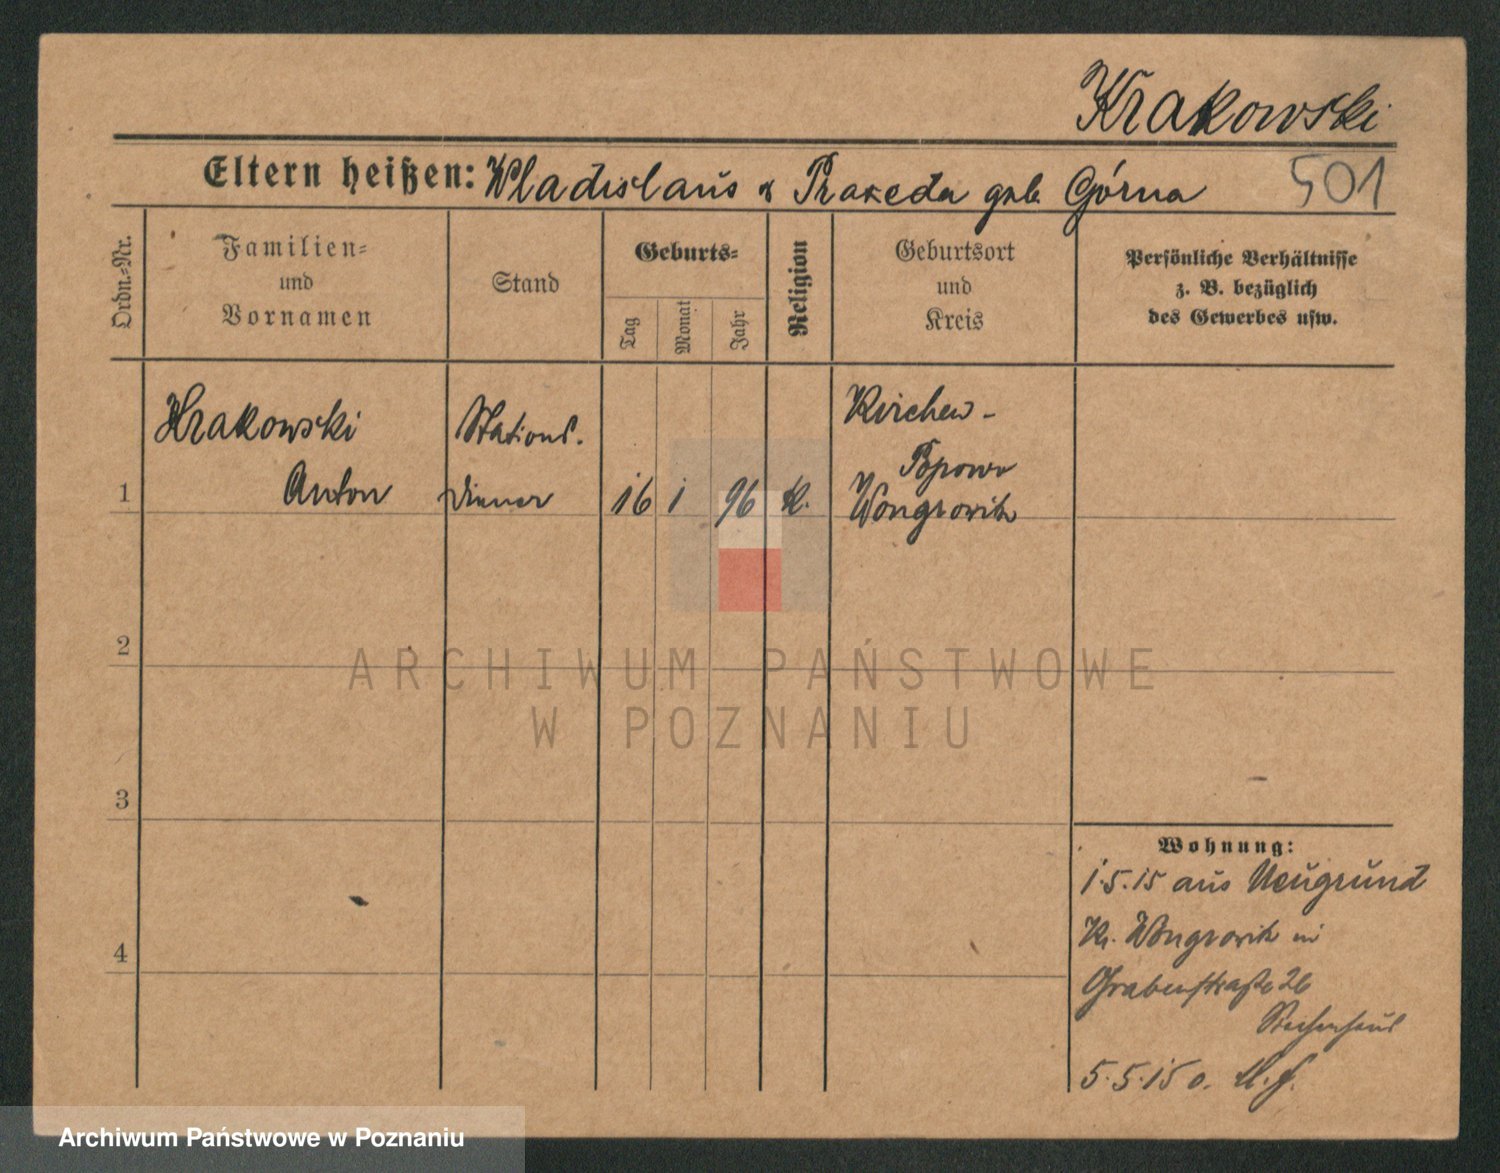 Krakowski
Eltern heißen: Wladislaus & Praxeda geb. Górna 501
Ordn.-Nr.
Familien-
und
Vornamen
Stand
Geburts-
Tag
Monat
Jahr
Religion
Geburtsort
und
Kreis
Persönliche Verhältnisse
z. B. bezüglich
des Gewerbes usw.
Krakowski
Anton
Stations-
diener
1 16 1 96 K.
Kirchen-
Popowo
Wongrowitz
2
3
4
Wohnung:
1.5.15 aus Neugrund
Kr. Wongrowitz in
Grabenstraße 26
5.5.15 o.
ARCHIWUM PAŃSTWOWE
W POZNANIU
Archiwum Państwowe w Poznaniu